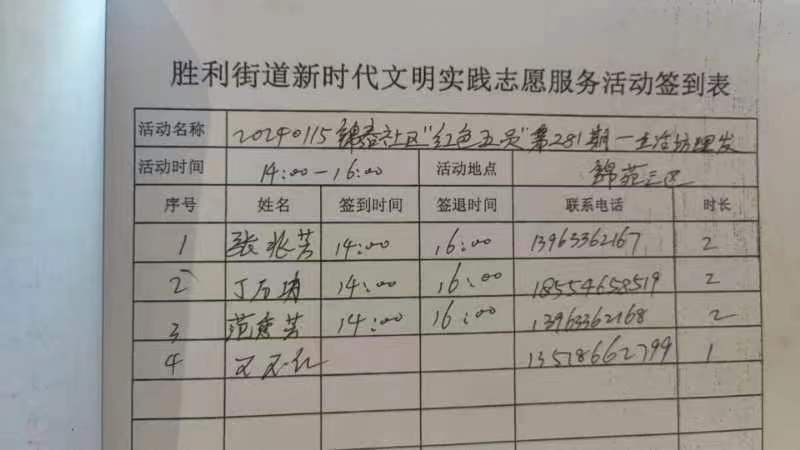 胜利街道新时代文明实践志愿服务活动签到表
活动名称 20240115锦春社区"红色五员"第281期一主治坊理发
活动时间 14:00-16:00 活动地点 锦苑三区
序号 姓名 签到时间 签退时间 联系电话 时长
1 张兆芳 14:00 16:00 13963362167 2
2 丁 14:00 16:00 18554658519 2
3 范秀芳 14:00 16:00 13963362168 2
4 13518662799 1